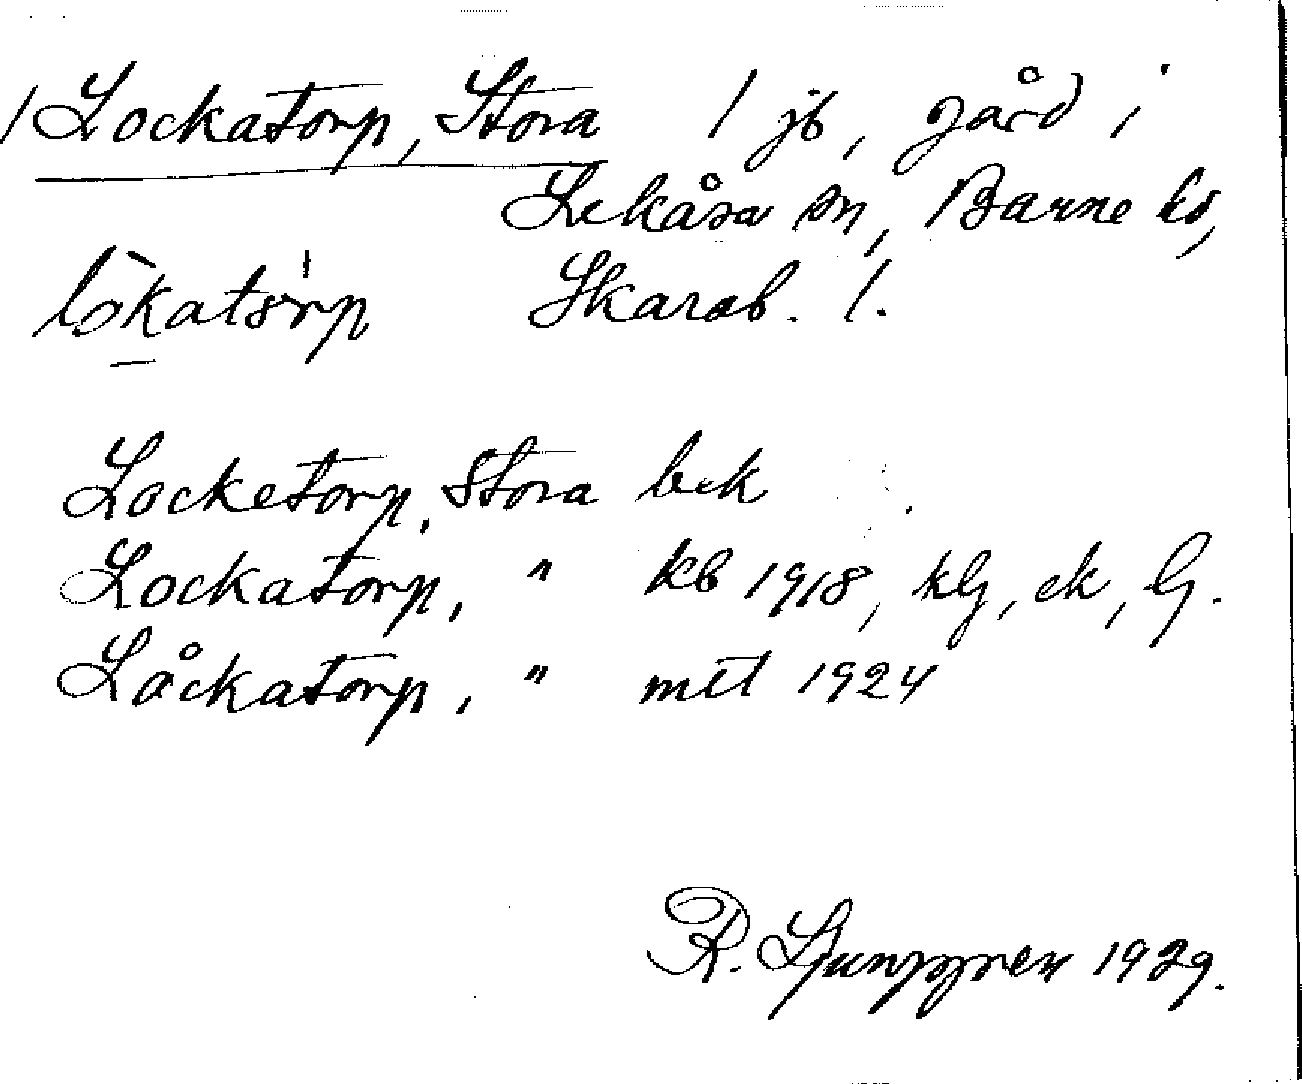 1 Lockatorp, Stora 1 jb, gård i
Lekåsa sn, Barne hd,
Skarab. l.
Locketorp, Stora bek
Lockatorp, " kb 1918, klg, ek, lg.
Låckatorp, " mtl 1924
R. Ljunggren 1929.